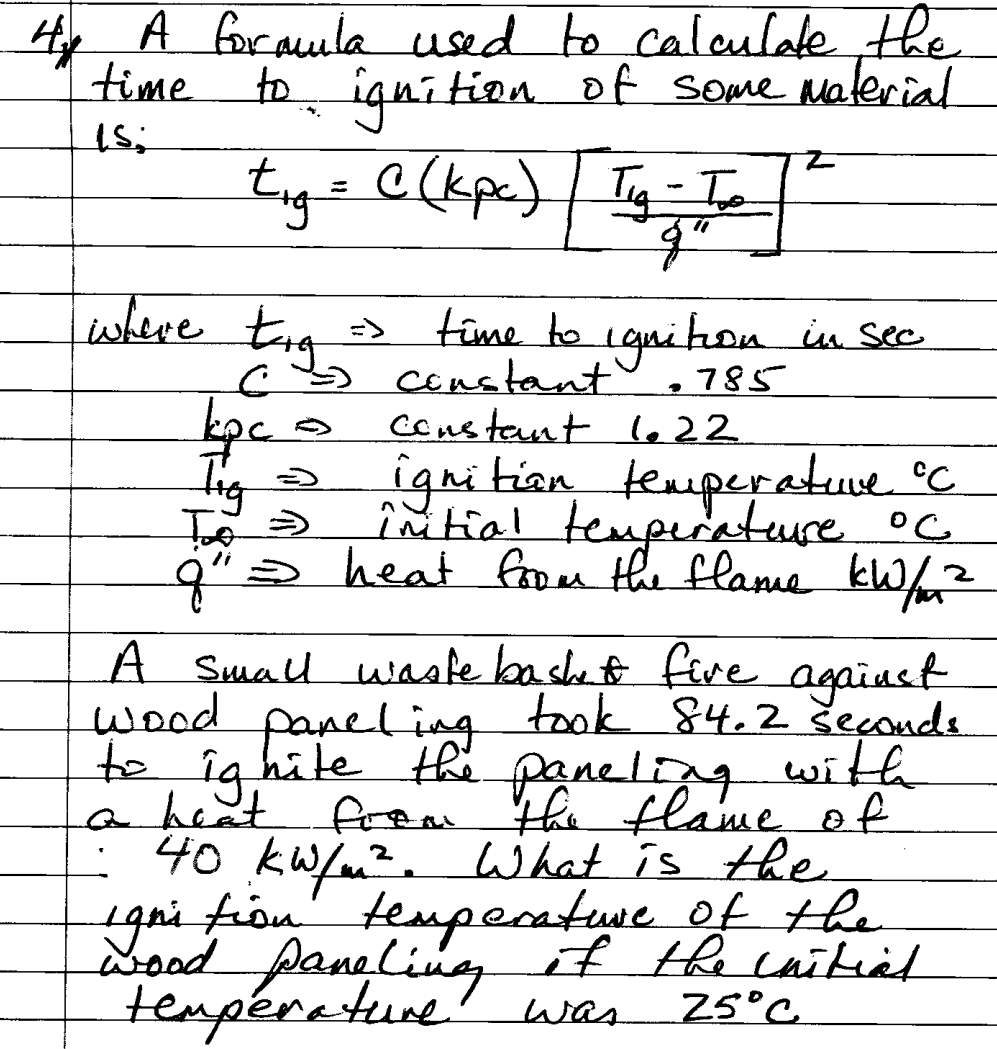 4, A formula used to calculate the
time to ignition of some material
is;
t_ig = C (kρc) [ (T_ig - T_∞) / q̇" ]²
where t_ig ⇒ time to ignition in sec
C ⇒ constant .785
kρc ⇒ constant 1.22
T_ig ⇒ ignition temperature °C
T_∞ ⇒ initial temperature °C
q̇" ⇒ heat from the flame kW/m²
A small waste basket fire against
wood paneling took 84.2 seconds
to ignite the paneling with
a heat from the flame of
40 kW/m². What is the
ignition temperature of the
wood paneling if the initial
temperature was 25°C